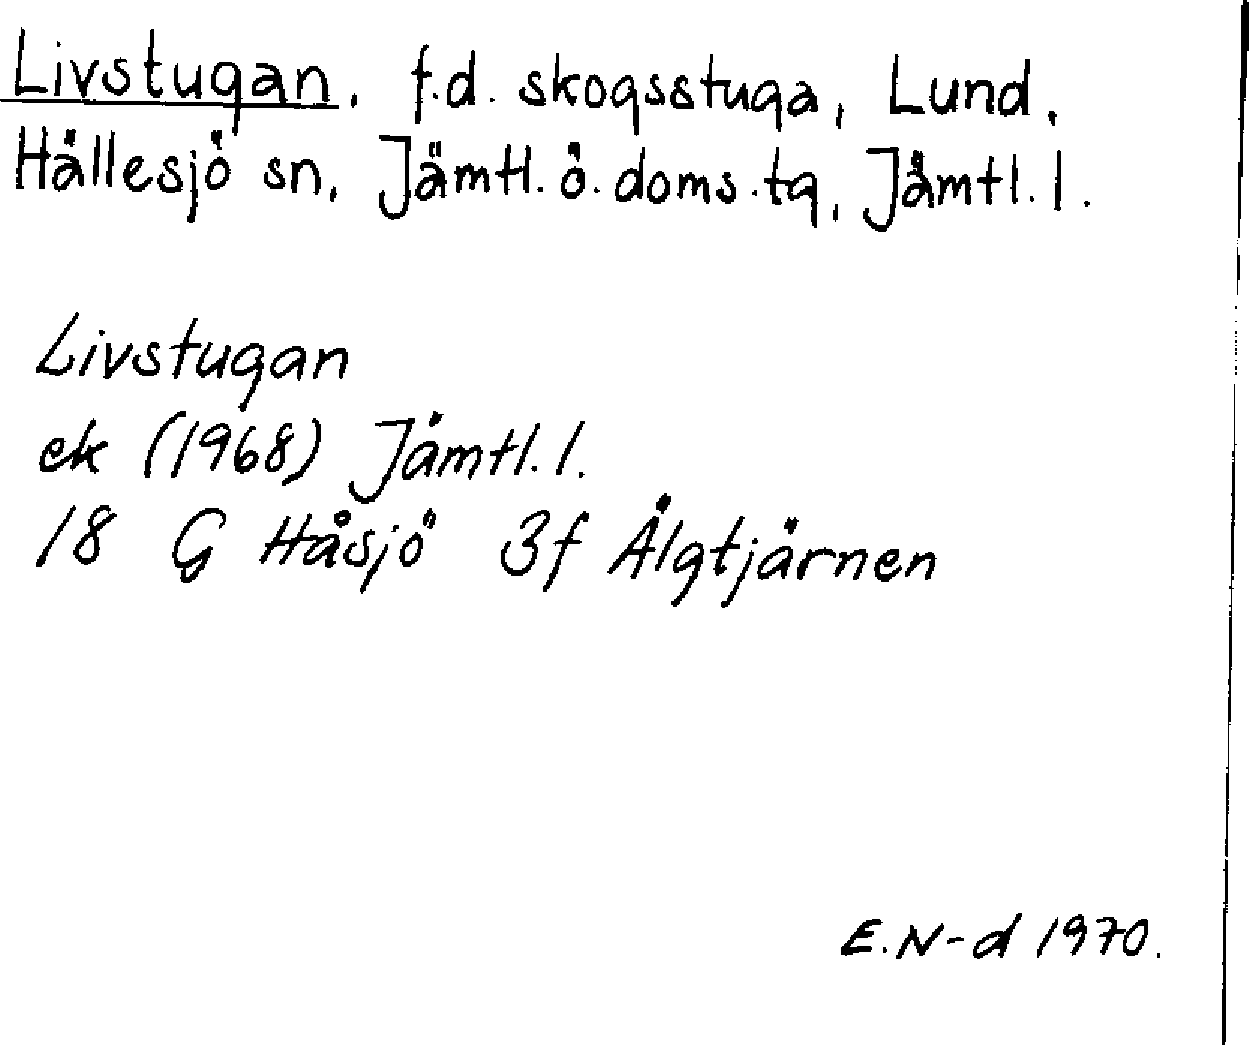 Livstugan, f.d. skogsstuga, Lund,
Hällesjö sn, Jämtl. ö. doms.tg, Jämtl. l.
Livstugan
ek (1968) Jämtl. l.
18 G Håsjö 3f Älgtjärnen
E.N-d 1970.